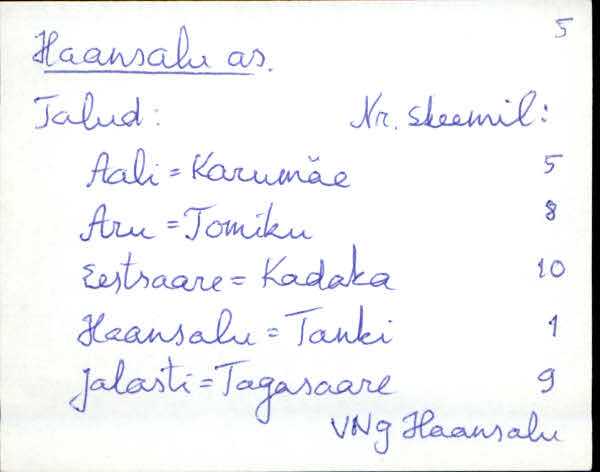 5
Haansalu as.
Talud: Nr. skeemil:
Aali = Karumäe 5
Aru = Tomiku 8
Eestsaare = Kadaka 10
Haansalu = Tanki 1
Jalasti = Tagasaare 9
VNg Haansalu